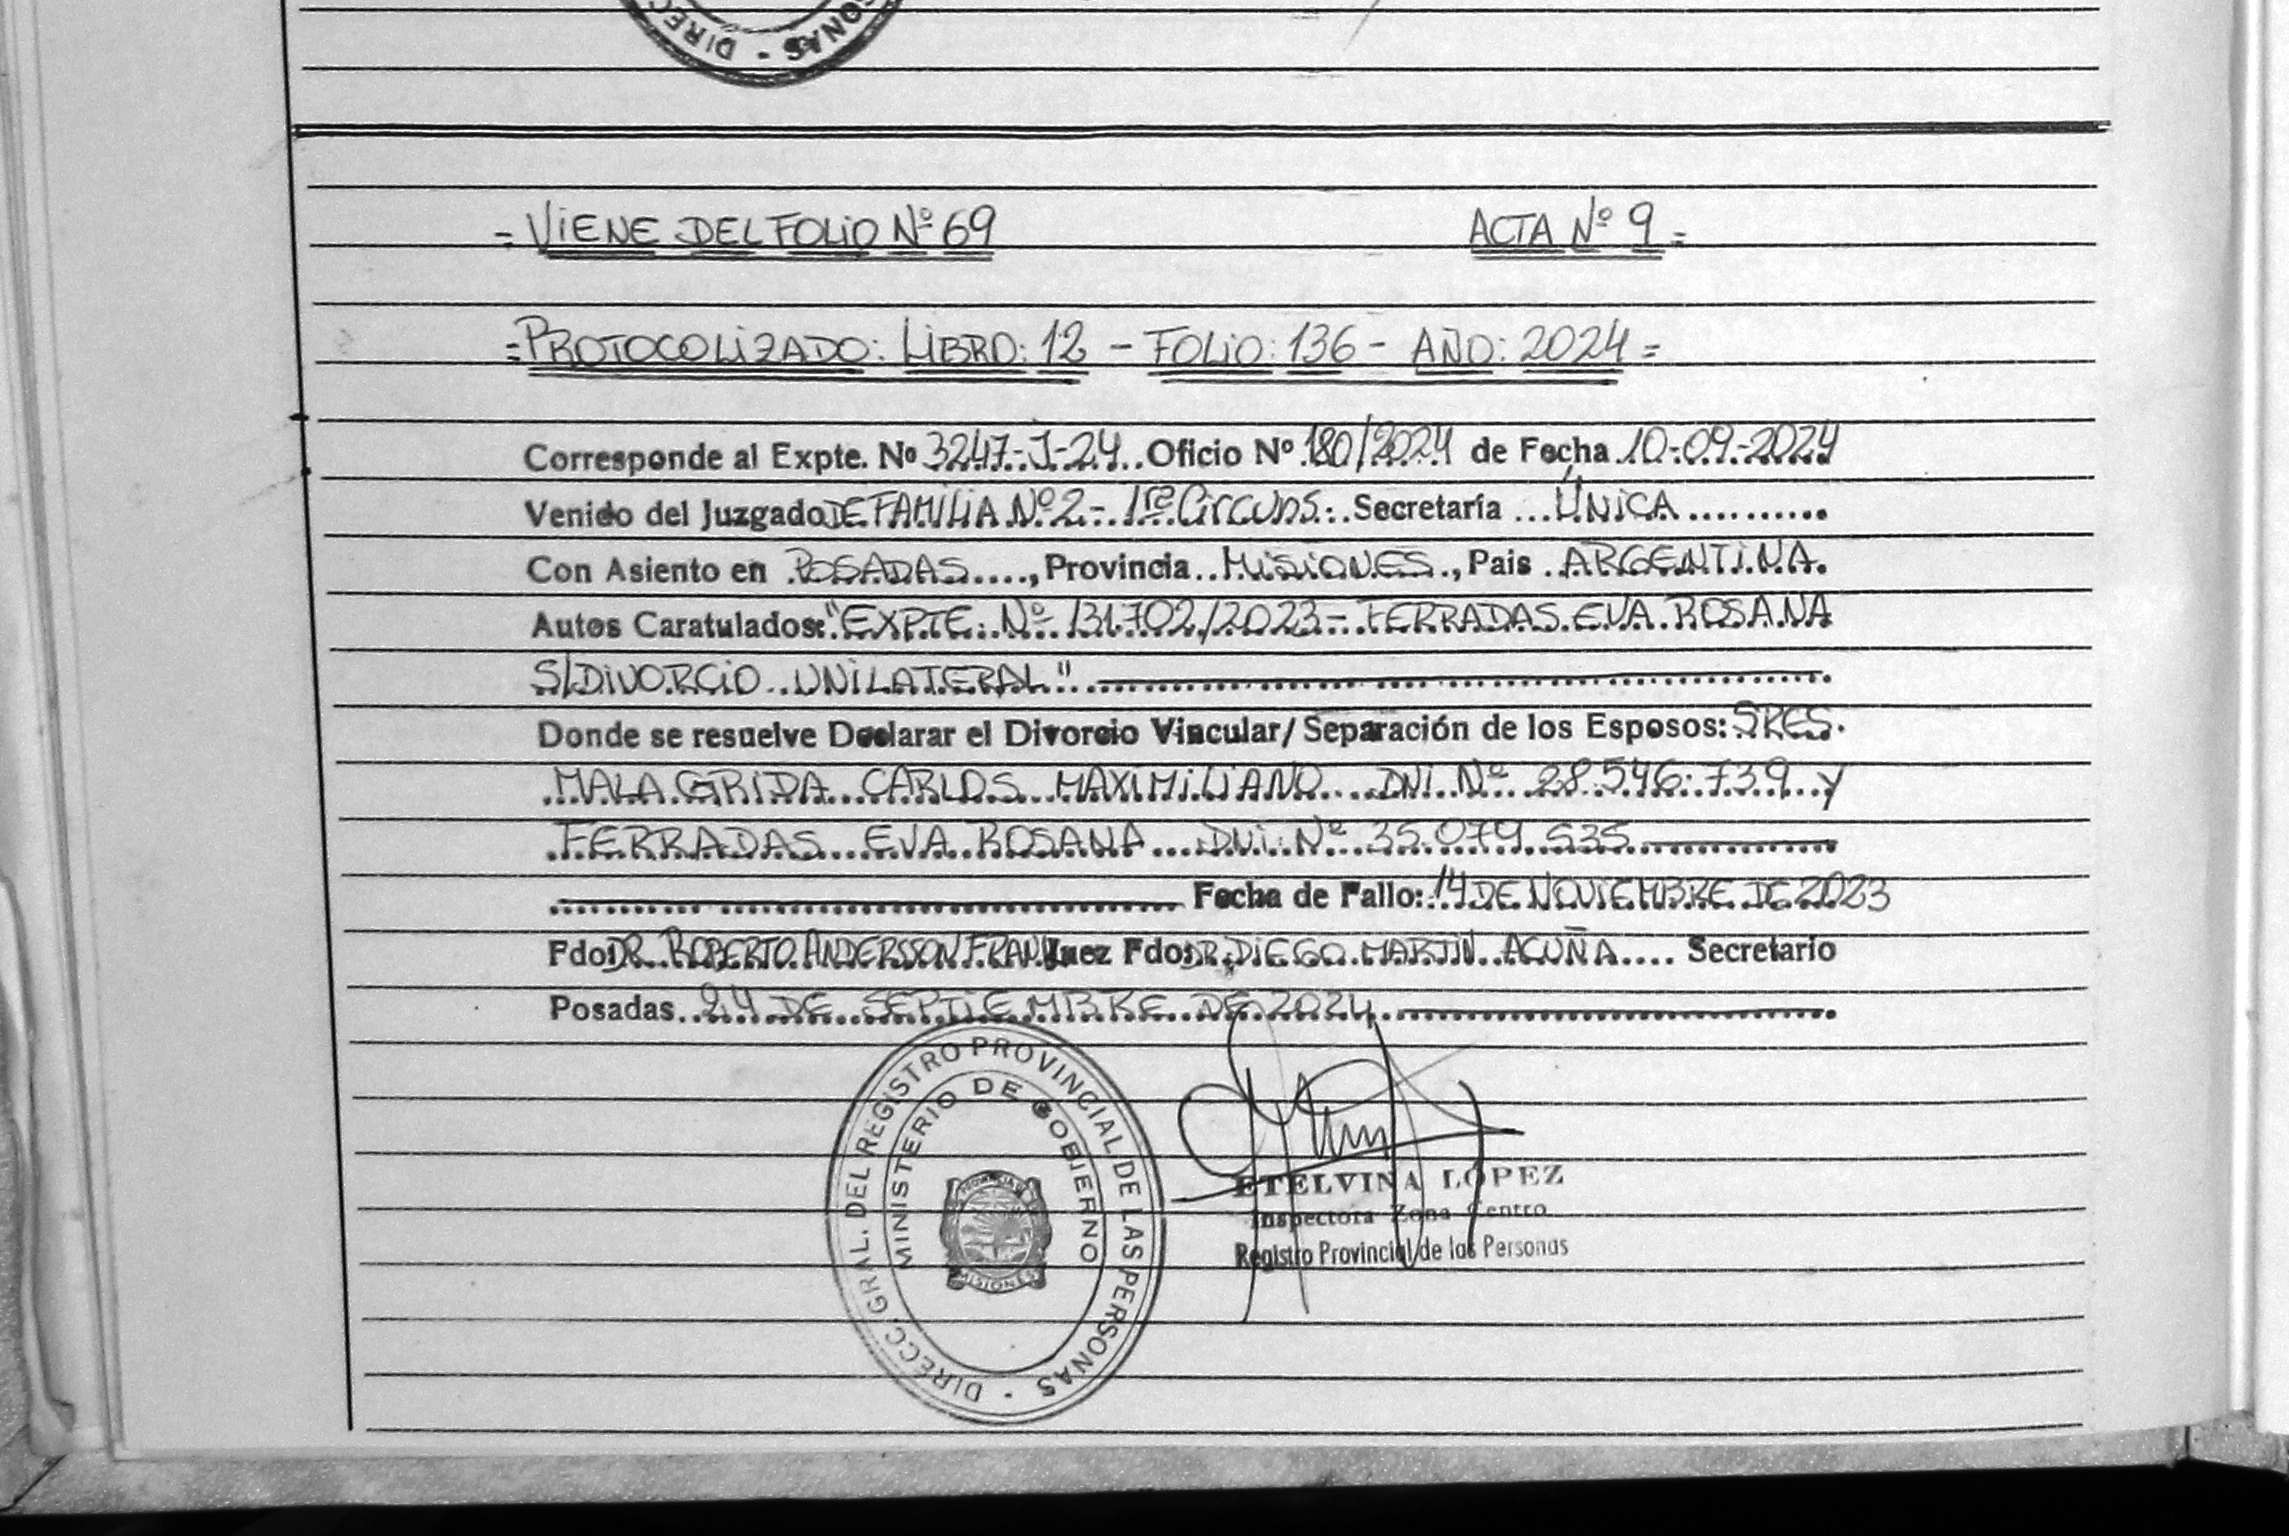 DIRECC
SONAS -
= VIENE DEL FOLIO Nº 69 ACTA Nº 9 =
= PROTOCOLIZADO: LIBRO: 12 - FOLIO: 136 - AÑO: 2024 =
Corresponde al Expte. Nº 3247-J-24 Oficio Nº 180/2024 de Fecha 10-09-2024
Venido del Juzgado DE FAMILIA Nº 2 - 1ra Circuns. Secretaría ÚNICA
Con Asiento en POSADAS, Provincia MISIONES, Pais ARGENTINA.
Autos Caratulados: "EXPTE. Nº 131.702/2023 - FERRADAS EVA ROSANA
S/DIVORCIO UNILATERAL"
Donde se resuelve Declarar el Divorcio Vincular/ Separación de los Esposos: SRES.
MALAGRIDA CARLOS MAXIMILIANO DNI Nº 28.546.739 y
FERRADAS EVA ROSANA DNI Nº 35.079.535
Fecha de Fallo: 14 DE NOVIEMBRE DE 2023
Fdo: DR. ROBERTO ANDERSSON FRANK Juez Fdo: DR. DIEGO MARTIN ACUÑA Secretario
Posadas 24 DE SEPTIEMBRE DE 2024
DIRECC. GRAL. DEL REGISTRO PROVINCIAL DE LAS PERSONAS -
MINISTERIO DE GOBIERNO
PROVINCIA DE
MISIONES
ETELVINA LÓPEZ
Inspectora Zona Centro
Registro Provincial de las Personas